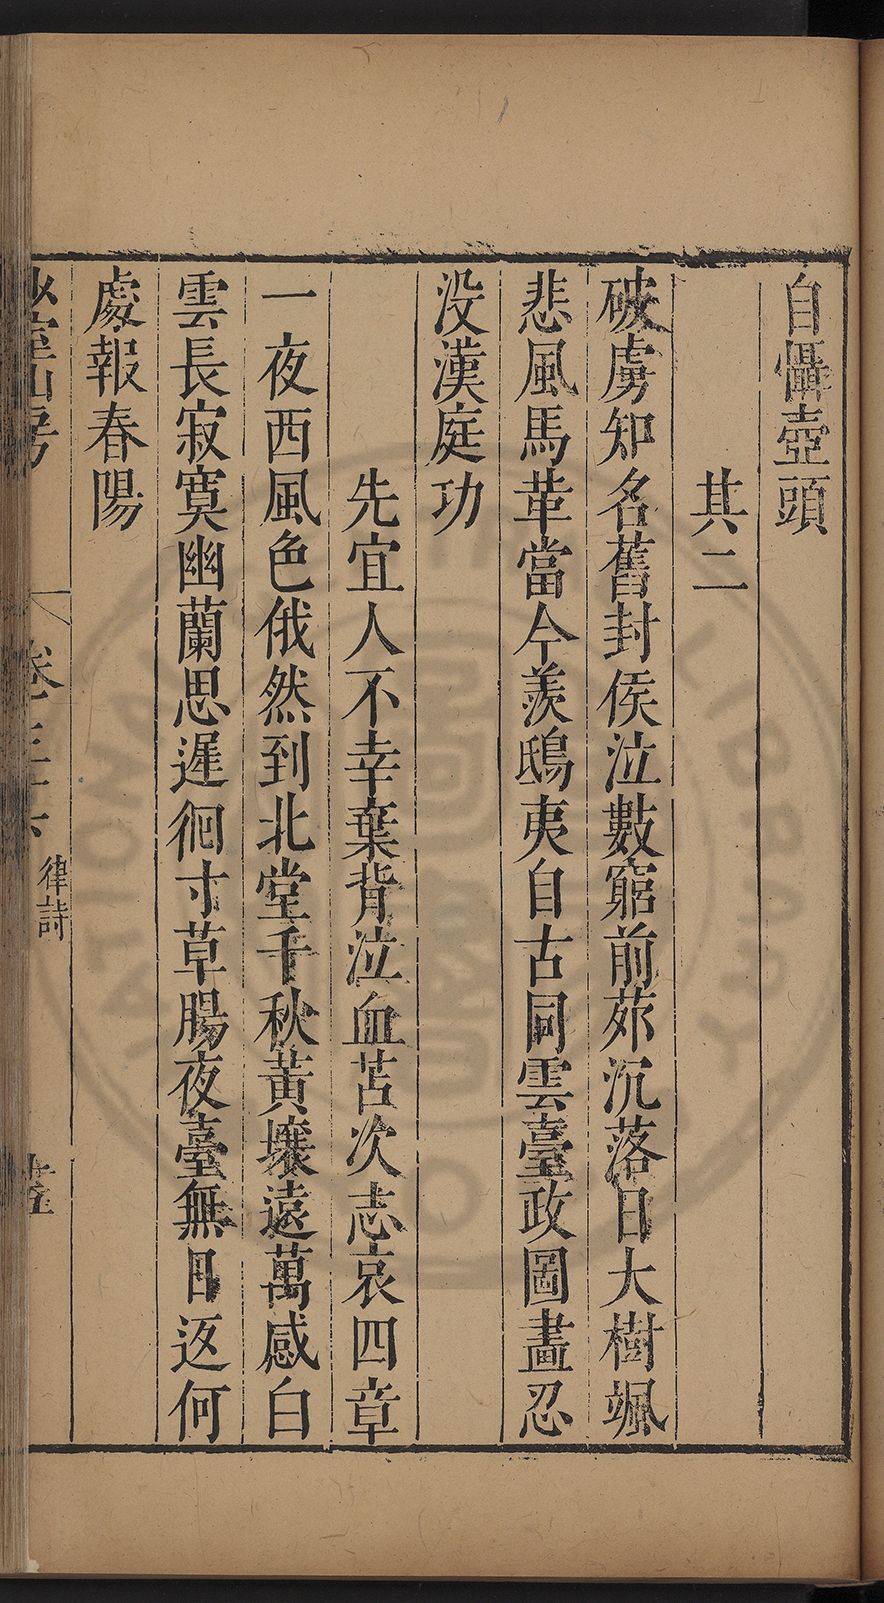 自懾壺頭
其二
破虜知名舊封侯泣數窮前茆沉落日大樹颯
悲風馬革當今羨鴟夷自古同雲臺政圖畫忍
没漢庭功
先宜人不幸棄背泣血苫次志哀四章
一夜西風色俄然到北堂千秋黃壤遠萬感白
雲長寂寞幽蘭思遲徊寸草腸夜臺無日返何
處報春陽
山房
卷三十六
律詩